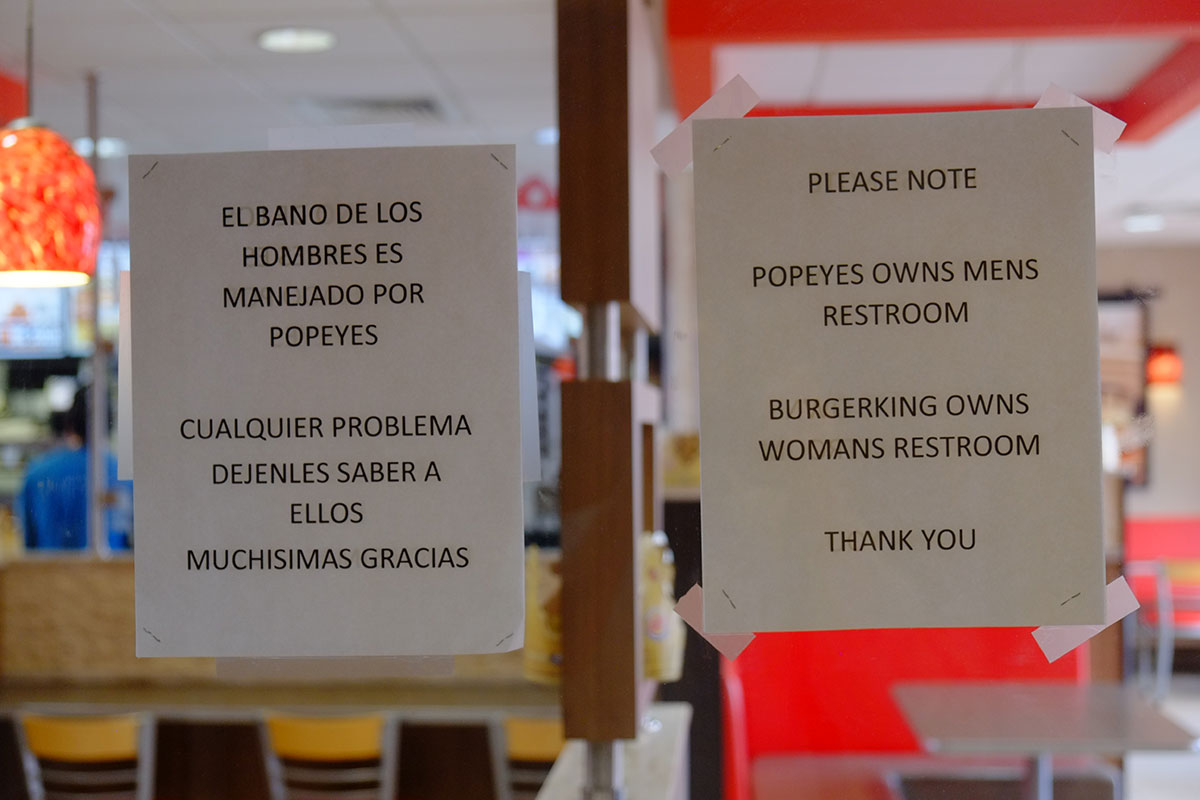 EL BANO DE LOS
HOMBRES ES
MANEJADO POR
POPEYES
CUALQUIER PROBLEMA
DEJENLES SABER A
ELLOS
MUCHISIMAS GRACIAS
PLEASE NOTE
POPEYES OWNS MENS
RESTROOM
BURGERKING OWNS
WOMANS RESTROOM
THANK YOU